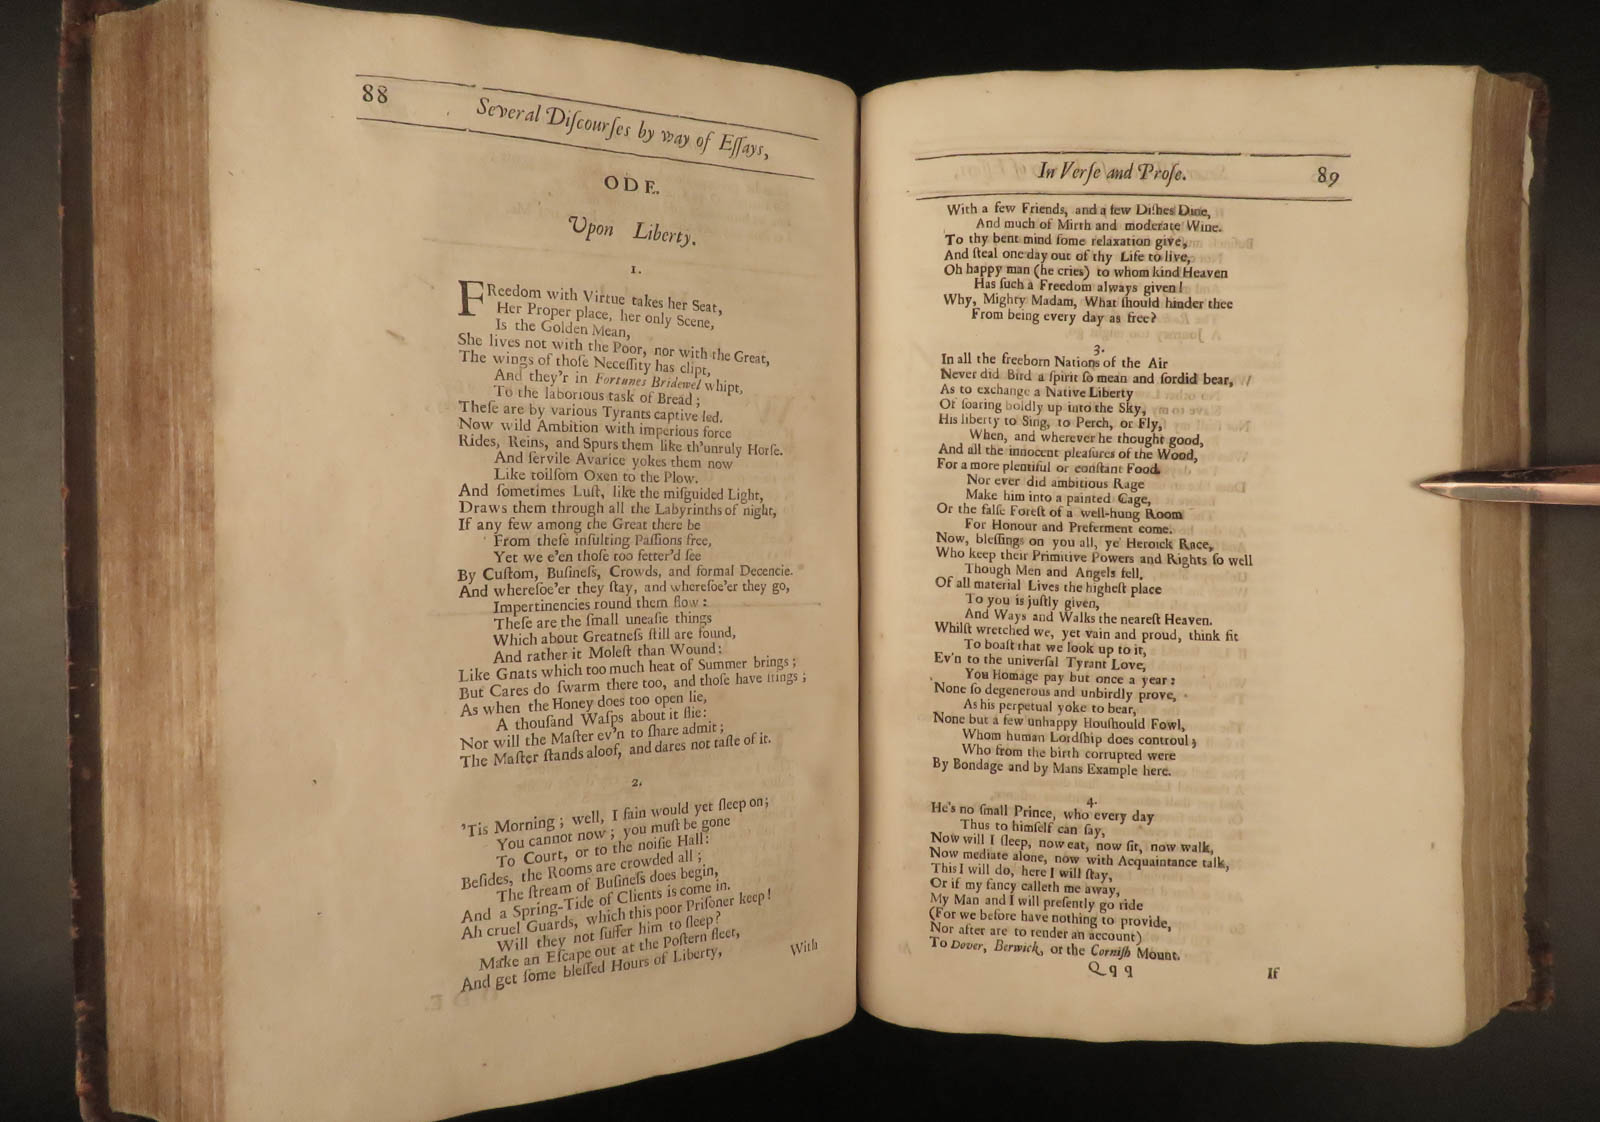 88
Several Diſcourſes by way of Eſſays,
ODE.
Upon Liberty.
1.
FReedom with Virtue takes her Seat,
Her Proper place, her only Scene,
Is the Golden Mean,
She lives not with the Poor, nor with the Great,
The wings of thoſe Neceſſity has clipt,
And they'r in Fortunes Bridewel whipt,
To the laborious task of Bread;
Theſe are by various Tyrants captive led.
Now wild Ambition with imperious force
Rides, Reins, and Spurs them like th'unruly Horſe.
And ſervile Avarice yokes them now
Like toilſom Oxen to the Plow.
And ſometimes Luſt, like the miſguided Light,
Draws them through all the Labyrinths of night,
If any few among the Great there be
From theſe inſulting Paſſions free,
Yet we e'en thoſe too fetter'd ſee
By Cuſtom, Buſineſs, Crowds, and formal Decencie.
And whereſoe'er they ſtay, and whereſoe'er they go,
Impertinencies round them flow:
Theſe are the ſmall uneaſie things
Which about Greatneſs ſtill are found,
And rather it Moleſt than Wound:
Like Gnats which too much heat of Summer brings;
But Cares do ſwarm there too, and thoſe have ſtings;
As when the Honey does too open lie,
A thouſand Waſps about it flie:
Nor will the Maſter ev'n to ſhare admit;
The Maſter ſtands aloof, and dares not taſte of it.
2.
'Tis Morning; well, I fain would yet ſleep on;
You cannot now; you muſt be gone
To Court, or to the noiſie Hall:
Beſides, the Rooms are crowded all;
The ſtream of Buſineſs does begin,
And a Spring-Tide of Clients is come in.
Ah cruel Guards, which this poor Priſoner keep!
Will they not ſuffer him to ſleep?
Make an Eſcape out at the Poſtern fleet,
And get ſome bleſſed Hours of Liberty,
With
In Verſe and Proſe.
89
With a few Friends, and a few Diſhes Dine,
And much of Mirth and moderate Wine.
To thy bent mind ſome relaxation give,
And ſteal one day out of thy Life to live,
Oh happy man (he cries) to whom kind Heaven
Has ſuch a Freedom always given!
Why, Mighty Madam, What ſhould hinder thee
From being every day as free?
3.
In all the freeborn Nations of the Air
Never did Bird a ſpirit ſo mean and ſordid bear,
As to exchange a Native Liberty
Of ſoaring boldly up into the Sky,
His liberty to Sing, to Perch, or Fly,
When, and wherever he thought good,
And all the innocent pleaſures of the Wood,
For a more plentiful or conſtant Food.
Nor ever did ambitious Rage
Make him into a painted Cage,
Or the falſe Foreſt of a well-hung Room
For Honour and Preferment come.
Now, bleſſings on you all, ye Heroick Race,
Who keep their Primitive Powers and Rights ſo well
Though Men and Angels fell.
Of all material Lives the higheſt place
To you is juſtly given,
And Ways and Walks the neareſt Heaven.
Whilſt wretched we, yet vain and proud, think fit
To boaſt that we look up to it,
Ev'n to the univerſal Tyrant Love,
You Homage pay but once a year:
None ſo degenerous and unbirdly prove,
As his perpetual yoke to bear,
None but a few unhappy Houſhould Fowl,
Whom human Lordſhip does controul;
Who from the birth corrupted were
By Bondage and by Mans Example here.
4.
He's no ſmall Prince, who every day
Thus to himſelf can ſay,
Now will I ſleep, now eat, now ſit, now walk,
Now mediate alone, now with Acquaintance talk,
This I will do, here I will ſtay,
Or if my fancy calleth me away,
My Man and I will preſently go ride
(For we before have nothing to provide,
Nor after are to render an account)
To Dover, Berwick, or the Corniſh Mount.
Qqq
If